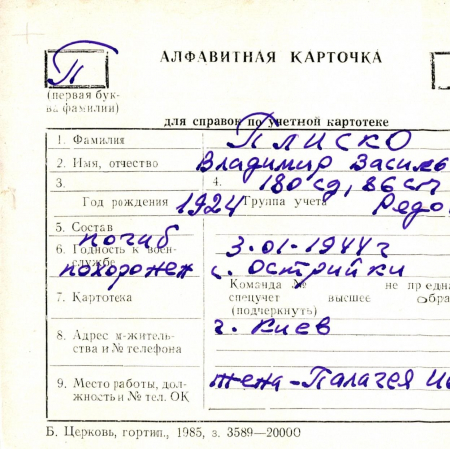 АЛФАВИТНАЯ КАРТОЧКА
П
(первая бук-
ва фамилии)
для справок по учетной картотеке
1. Фамилия ПЛИСКО
2. Имя, отчество Владимир Василь
3. 4. 180 сд, 86 сп
Год рождения 1924 Группа учета Рядо
5. Состав погиб
6. Годность к воен- 3.01-1944г
службе похоронен с. Острийки
Команда № не предна
7. Картотека спецучет высшее обра
(подчеркнуть)
8. Адрес м-жительс- г. Киев
тва и № телефона
9. Место работы, дол- жена-Палагея
жность и № тел. ОК
Б. Церковь, гортип., 1985, з. 3589—20000